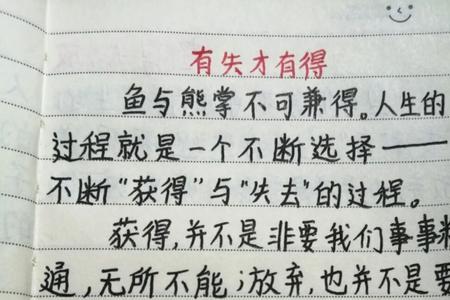 有失才有得
鱼与熊掌不可兼得。人生的
过程就是一个不断选择——
不断“获得”与“失去”的过程。
获得,并不是非要我们事事
通,无所不能;放弃,也并不是要